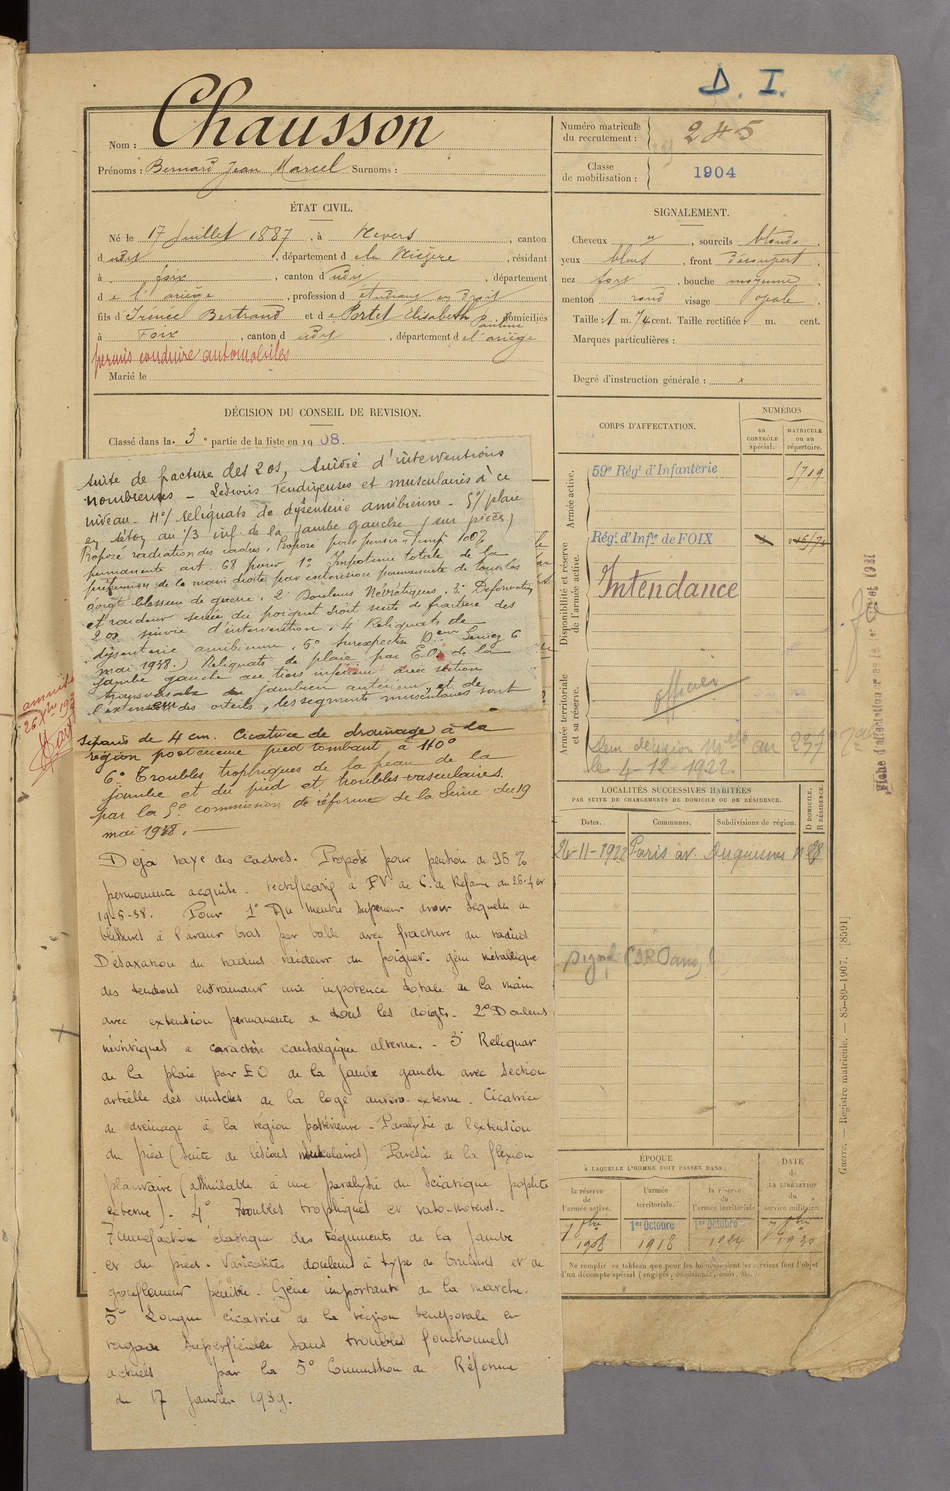 D. I.
Nom : Chausson
Prénoms : Bernard Jean Marcel Surnoms :
Numéro matricule du recrutement : 245
Classe de mobilisation : 1904
ÉTAT CIVIL.
Né le 17 Juillet 1887, à Nevers, canton
d udit, département de la Nièvre, résidant
à Foix, canton d udit, département
d e l'ariège, profession d étudiant en droit
fils d Irénée Bertrand et d e Portet Elisabeth Pauline domiciliés
à Foix, canton d udit, département d e l'ariège
permis conduire automobiles
Marié le
SIGNALEMENT.
Cheveux, sourcils blonds
yeux bleus, front découvert
nez fort, bouche moyenne
menton rond visage ovale
Taille : 1 m. 74 cent. Taille rectifiée : m. cent.
Marques particulières :
Degré d'instruction générale :
DÉCISION DU CONSEIL DE REVISION.
Classé dans la 3e partie de la liste en 1908.
suite de fracture des 2 os, suivie d'interventions
nombreuses – Lésions tendineuses et musculaires à ce
niveau – 4°/ reliquats de dysenterie amibienne – 5°/ plaie
au 1/3 inf. de la jambe gauche (sur pièces)
Proposé radiation des cadres. Proposé pour pension 100%
permanente art. 68 pour 1° Impotence totale de la
préhension de la main droite par extension permanente de tous les
doigts blessure de guerre. 2° Douleurs Névritiques. 3° Déformation
et raideur serrée du poignet droit suite de fracture des
2 os suivie d'intervention. 4° Reliquats de
dysenterie amibienne. 5°
mai 1938.) Reliquats de plaie par E.O. de la
jambe gauche au tiers inférieur avec section
transversale du jambier antérieur et de
l'extenseur des orteils, les segments musculaires sont
séparés de 4 cm. Cicatrice de drainage à la
région postérieure pied tombant à 110°
6° Troubles trophiques de la peau de la
jambe et du pied et troubles vasculaires.
par la 5e commission de réforme de la Seine du 19
mai 1938. —
Déjà rayé des cadres. Proposé pour pension de 95 %
permanente acquise. rectificatif à P.V. de C. de Réforme du 26-4 et
19-5-38. Pour 1° Au membre supérieur droit séquelle de
blessures à l'avant bras par balle avec fracture du radius
Désaxation du radius raideur du poignet. gêne métallique
des tendons entrainant une impotence totale de la main
avec extension permanente de tous les doigts. 2° Douleurs
névritiques à caractère causalgique alterne. - 3° Reliquat
de la plaie par E O de la jambe gauche avec section
des muscles de la loge antéro-externe. Cicatrice
de drainage à la région postérieure - Paralysie de l'extension
du pied (suite de lésions musculaires) Parésie de la flexion
plantaire (assimilable à une paralysie du sciatique poplité
externe). - 4° Troubles trophiques et vaso-moteurs. -
Tuméfaction élastique des téguments de la jambe
et du pied. Varicosités douleurs à type de brûlures et de
gonflement pénible. Gêne importante de la marche.
5° Longue cicatrice de la région temporale
superficielle sans troubles fonctionnels
actuels par la 5° Commission de Réforme
du 17 Janvier 1939.
CORPS D'AFFECTATION.
NUMÉROS
AU CONTRÔLE spécial.
MATRICULE ou au répertoire.
Armée active.
59e Régt d'Infanterie
Disponibilité et réserve de l'armée active.
Régt d'Infie de FOIX
Intendance
officier
Armée territoriale et sa réserve.
le 4-12-1922
LOCALITÉS SUCCESSIVES HABITÉES
PAR SUITE DE CHANGEMENTS DE DOMICILE OU DE RÉSIDENCE.
Dates. Communes. Subdivisions de région. D DOMICILE. R RÉSIDENCE.
24-11-1922 Paris av. Duquesne
ÉPOQUE
À LAQUELLE L'HOMME DOIT PASSER DANS :
la réserve de l'armée active.
l'armée territoriale.
la réserve de l'armée territoriale.
DATE de LA LIBÉRATION du service militaire.
1er 8bre 1908
1er Octobre 1918
1er Octobre 1924
1930
Ne remplir ce tableau que pour les hommes dont les services font l'objet
d'un décompte spécial (engagés, omis, etc.).
Guerre. — Registre matricule. — 85-89-1907. [8591]